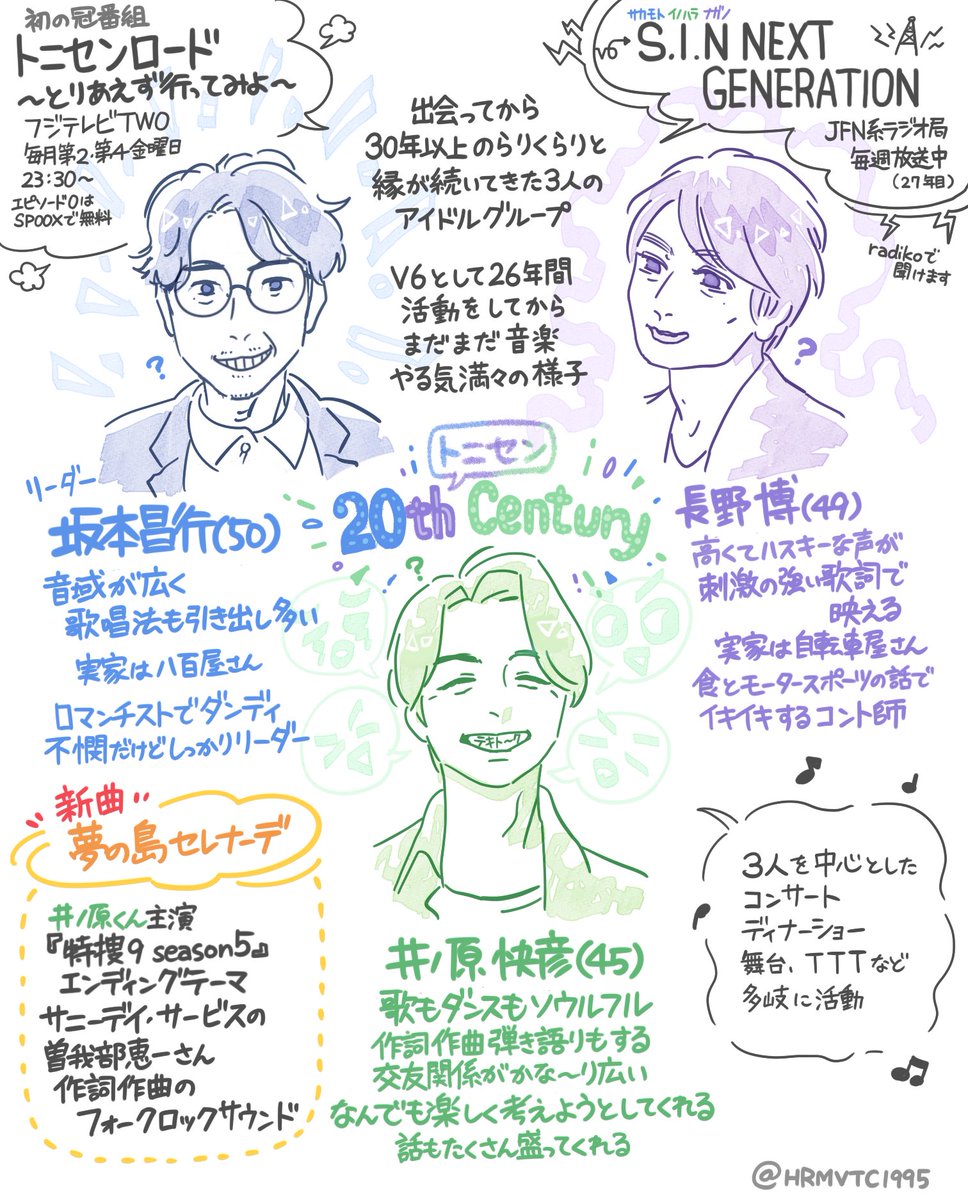 初の冠番組
トニセンロード
〜とりあえず行ってみよ〜
フジテレビTWO
毎月第2・第4金曜日
23:30〜
エピソード0は
SPOOXで無料
出会ってから
30年以上のらりくらりと
縁が続いてきた3人の
アイドルグループ
V6として26年間
活動をしてから
まだまだ音楽
やる気満々の様子
サカモト イノハラ ナガノ
V6→S.I.N NEXT
GENERATION
JFN系ラジオ局
毎週放送中
(27年目)
radikoで
聞けます
?
?
トニセン
20th Century
リーダー
坂本昌行(50)
音域が広く
歌唱法も引き出し多い
実家は八百屋さん
ロマンチストでダンディ
不憫だけどしっかりリーダー
長野博(49)
高くてハスキーな声が
刺激の強い歌詞で
映える
実家は自転車屋さん
食とモータースポーツの話で
イキイキするコント師
?
テキト〜ク
井ノ原快彦(45)
歌もダンスもソウルフル
作詞作曲弾き語りもする
交友関係がかな〜り広い
なんでも楽しく考えようとしてくれる
話もたくさん盛ってくれる
新曲
夢の島セレナーデ
井ノ原くん主演
『特捜9 season5』
エンディングテーマ
サニーデイ・サービスの
曽我部恵一さん
作詞作曲の
フォークロックサウンド
3人を中心とした
コンサート
ディナーショー
舞台、TTTなど
多岐に活動
@HRMVTC1995